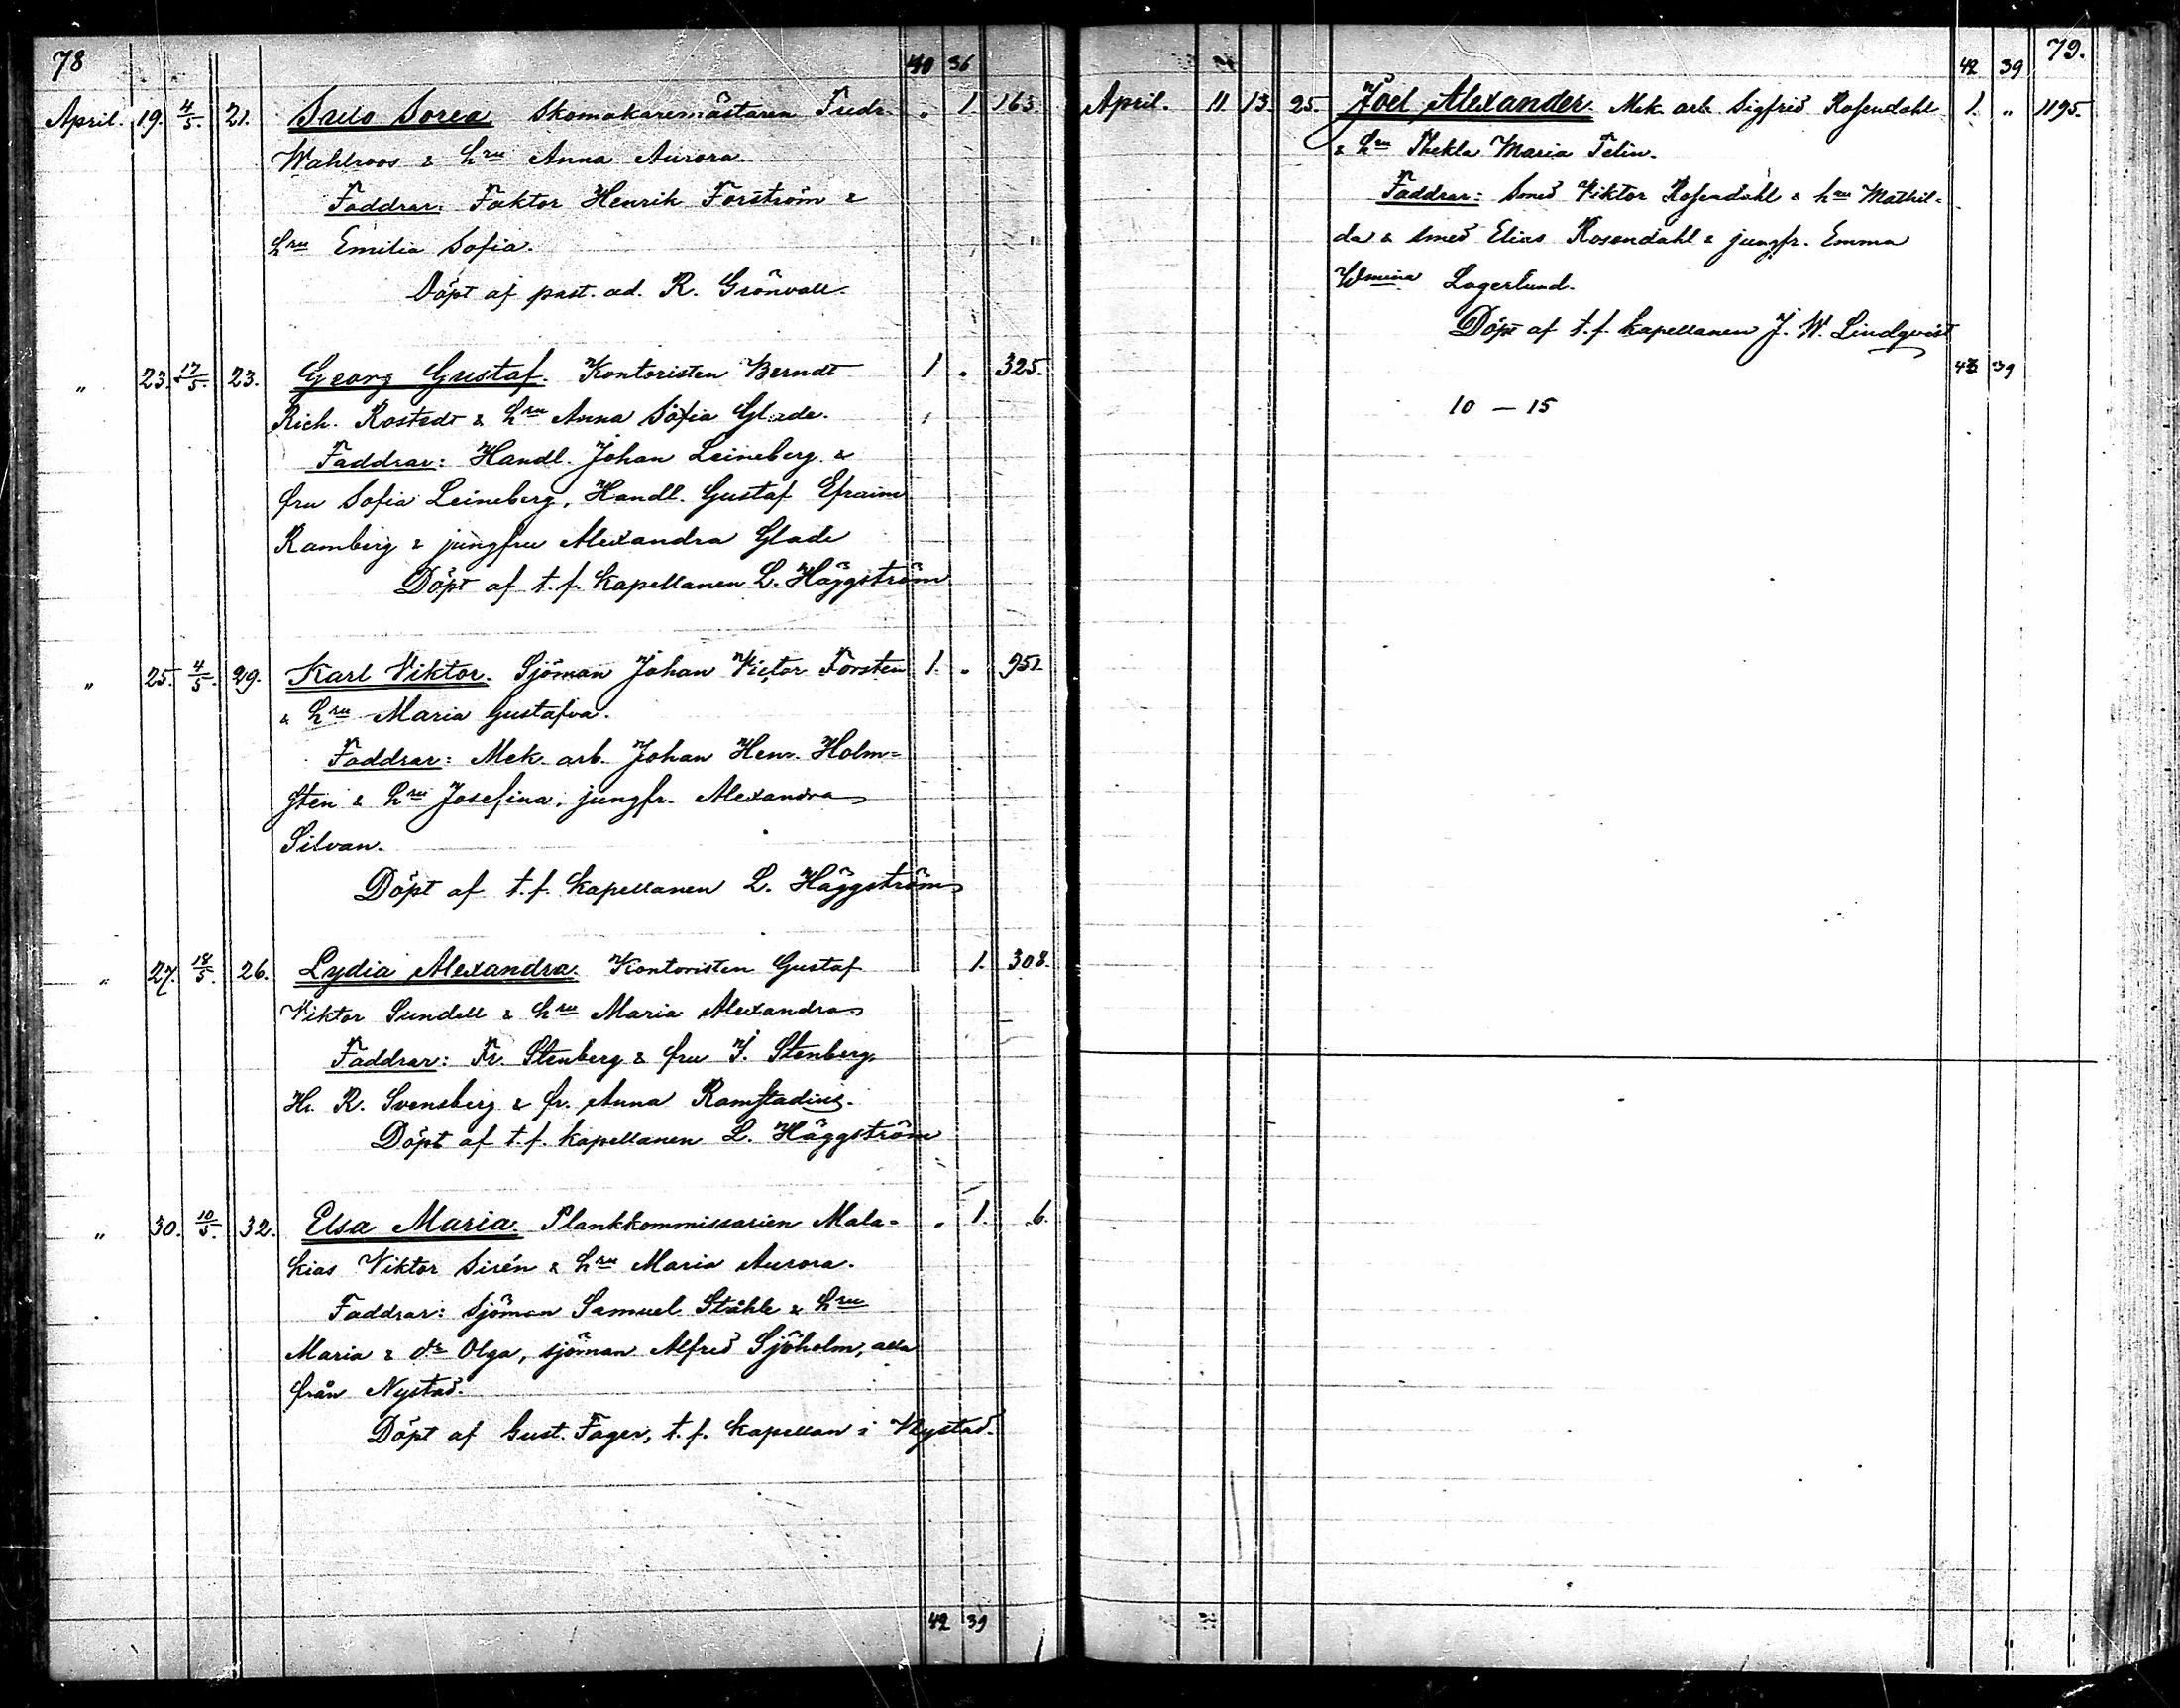 78
40 36
April. 19. 4/5. 21. Sorea Skomakaremästaren Fredr. „ 1. 163.
Wahlroos & hru Anna Aurora.
Faddrar: Faktor Henrik Forström &
hru Emilia Sofia.
Döpt af past. ad. R. Grönvall.
„ 23. 17/5. 23. Georg Gustaf. Kontoristen Berndt 1 „ 325.
Rich. Rostedt & hru Anna Sofia Glade.
Faddrar: Handl. Johan Leineberg &
fru Sofia Leineberg, Handl. Gustaf Efraim
Ramberg & jungfru Alexandra Glade
Döpt af t.f. kapellanen L. Häggström
„ 25. 4/5. 29. Karl Viktor. Sjöman Johan Victor Forsten 1. „ 951.
& hru Maria Gustafva.
Faddrar: Mek. arb. Johan Henr. Holm=
sten & hru Josefina, jungfr. Alexandra
Silvan.
Döpt af t.f. kapellanen L. Häggström
„ 27. 18/5. 26. Lydia Alexandra. Kontoristen Gustaf 1. 308.
Viktor Sundell & hru Maria Alexandra
Faddrar: Fr. Stenberg & fru J. Stenberg,
Hr. R. Svensberg & fr. Anna Ramstadius.
Döpt af t.f. kapellanen L. Häggström
„ 30. 10/5. 32. Elsa Maria. Plankkommissarien Mala- „ 1. 6.
kias Viktor Sirén & hru Maria Aurora.
Faddrar: Sjöman Samuel Ståhle & hru
Maria & dr Olga, sjöman Alfred Sjöholm, alla
från Nystad.
Döpt af Gust. Fager, t.f. kapellan i Nystad.
42 39
79.
42 39
April. 11 13 25. Joel Alexander. Mek. arb. Sigfrid Rosendahl 1. „ 1195.
& hru Thekla Maria Felin.
Faddrar: Smed Viktor Rosendahl & hru Mathil=
da & smed Elias Rosendahl & jungfr. Emma
Wmina Lagerlund.
Döpt af t.f. kapellanen J. W. Lindqvist
43 39
10 — 15